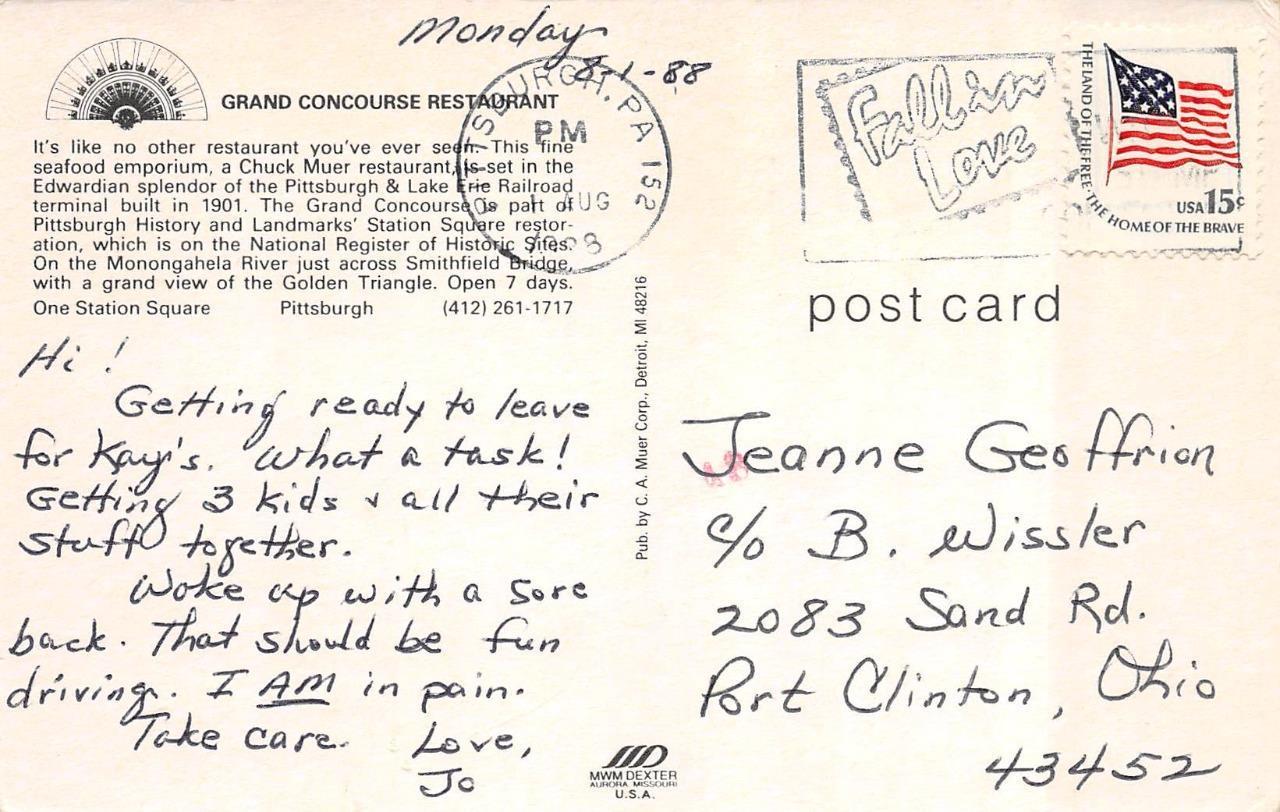 Monday
8-1-88
GRAND CONCOURSE RESTAURANT
It's like no other restaurant you've ever seen. This fine
seafood emporium, a Chuck Muer restaurant, is set in the
Edwardian splendor of the Pittsburgh & Lake Erie Railroad
terminal built in 1901. The Grand Concourse is part of
Pittsburgh History and Landmarks' Station Square restor-
ation, which is on the National Register of Historic Sites.
On the Monongahela River just across Smithfield Bridge,
with a grand view of the Golden Triangle. Open 7 days.
One Station Square Pittsburgh (412) 261-1717
PITTSBURGH, PA 152
PM
1 AUG
1988
Fall in
Love
THE LAND OF THE FREE · THE HOME OF THE BRAVE
USA 15c
post card
Hi!
Getting ready to leave
for Kay's. What a task!
Getting 3 kids & all their
stuff together.
Woke up with a sore
back. That should be fun
driving. I AM in pain.
Take care. Love,
Jo
Pub. by C. A. Muer Corp., Detroit, MI 48216
Jeanne Geoffrion
c/o B. Wissler
2083 Sand Rd.
Port Clinton, Ohio
43452
MWM DEXTER
AURORA, MISSOURI
U.S.A.